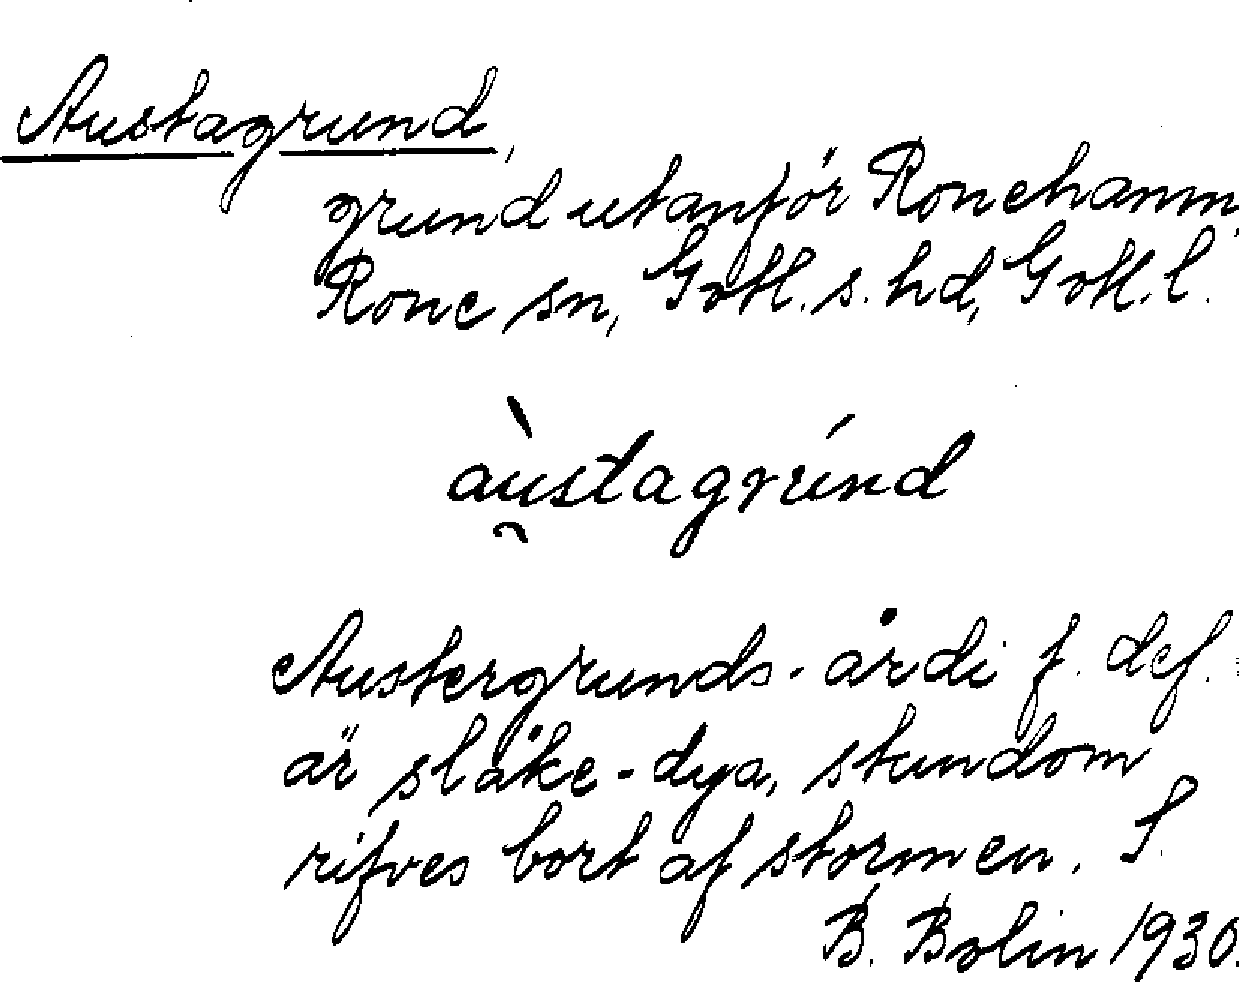 Austagrund,
grund utanför Ronehamn,
Rone sn, Gotl. s. hd, Gotl. l.
àu̯stagrúnd
Austergrunds-årdi f. def.
är slåke-dya, stundom
rifves bort af stormen. S.
B. Bolin 1930.